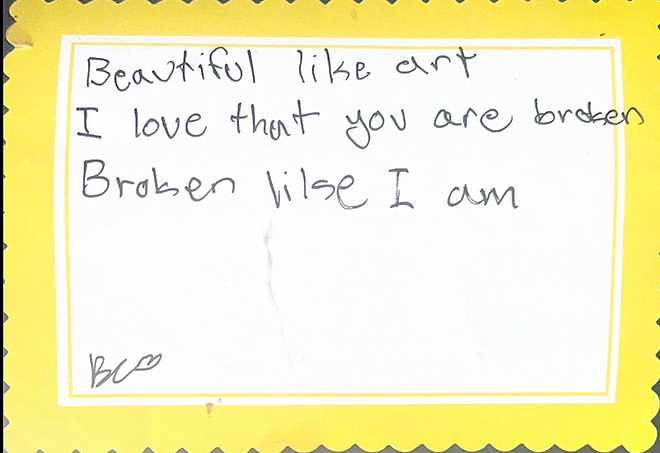 Beautiful like art
I love that you are broken
Broken like I am
BC